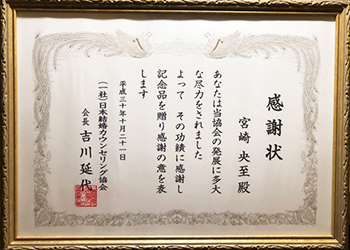 感謝状
宮崎 央至 殿
あなたは当協会の発展に多大
な尽力をされました
よって その功績に感謝し
記念品を贈り感謝の意を表
します
平成三十年十月二十一日
(一社)日本結婚カウンセリング協会
会長 吉川延代